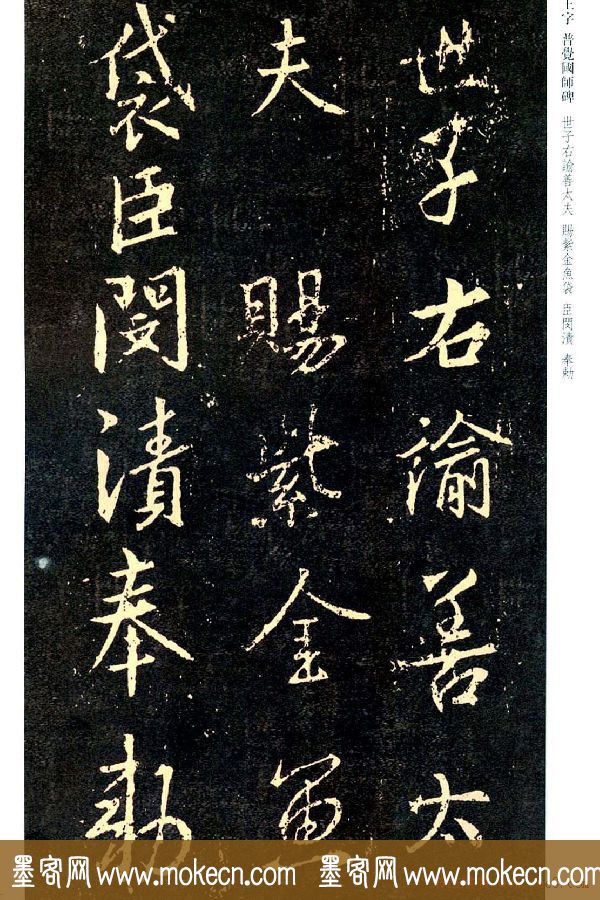 世子右諭善太
夫 賜紫金魚
袋臣閔漬奉勅
王字 普覺國師碑 世子右諭善太夫 賜紫金魚袋 臣閔漬 奉勅
墨客网 www.mokecn.com 墨客网 www.mokecn.com